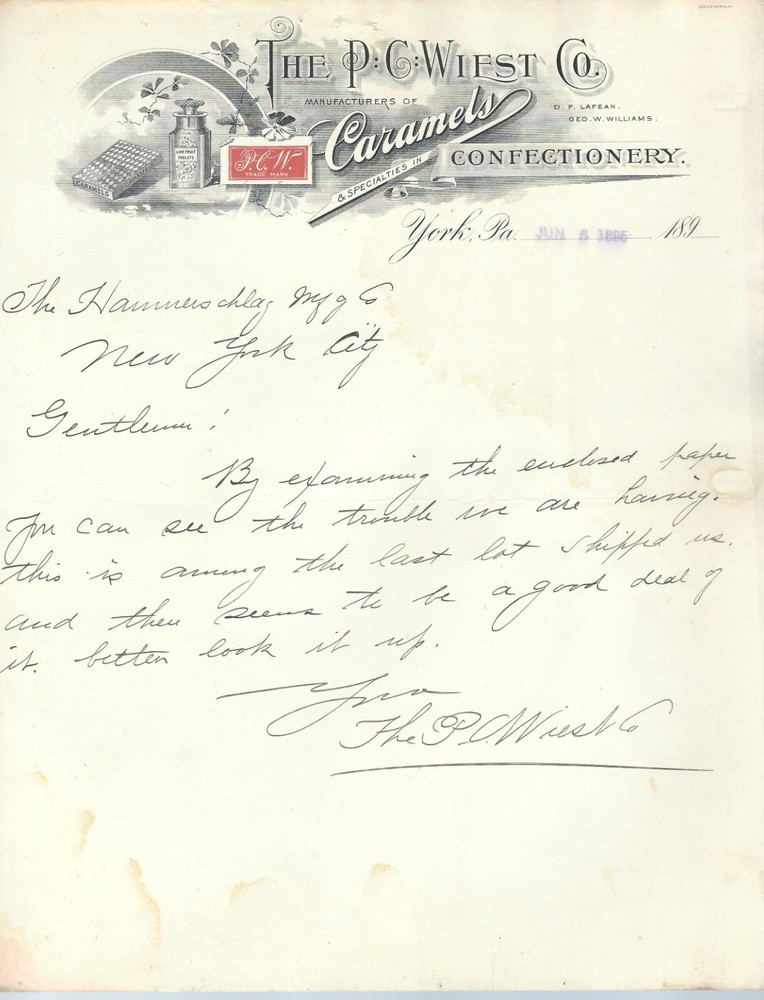 THE P. C. WIEST CO.
MANUFACTURERS OF
Caramels
D. F. LAFEAN.
GEO. W. WILLIAMS.
& SPECIALTIES IN
CONFECTIONERY.
LIME FRUIT
TABLETS
CARAMELS
P.C.W.
TRADE MARK
York, Pa. JUN 6 1895 189
The Hammerschlag Mfg Co
New York City
Gentlemen!
By examining the enclosed paper
you can see the trouble we are having.
this is among the last lot shipped us.
and there seems to be a good deal of
it. better look it up.
Yours
The P. C. Wiest Co